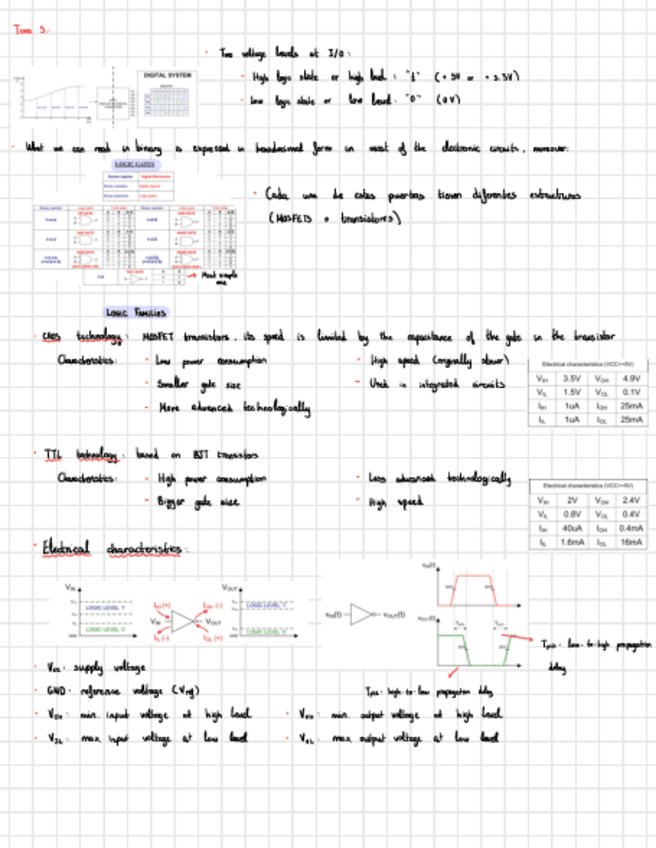 Tema 5:
Two voltage levels at I/O:
High logic state or high level: "1" (+5V or +3.3V)
Low logic state or low level: "0" (0V)
DIGITAL SYSTEM
What we can read in binary is expressed in hexadecimal form in most of the electronic circuits, moreover:
LOGIC GATES
Cada una de estas puertas tienen diferentes estructuras
(MOSFETS o transistores)
Most simple
one
LOGIC FAMILIES
CMOS technology: MOSFET transistors, its speed is limited by the capacitance of the gate in the transistor
Characteristics: Low power consumption
High speed (originally slower)
Smaller gate size
Used in integrated circuits
More advanced technologically
Electrical characteristics (VCC=+5V)
VIH 3.5V VOH 4.9V
VIL 1.5V VOL 0.1V
IIH 1uA IOH 25mA
IIL 1uA IOL 25mA
TTL technology: based on BJT transistors
Characteristics: High power consumption
Less advanced technologically
Bigger gate size
High speed
Electrical characteristics (VCC=+5V)
VIH 2V VOH 2.4V
VIL 0.8V VOL 0.4V
IIH 40uA IOH 0.4mA
IIL 1.6mA IOL 16mA
Electrical characteristics:
VIN
LOGIC LEVEL '1'
LOGIC LEVEL '0'
IIH (+)
IOH (-)
VIN
VOUT
IIL (-)
IOL (+)
VOUT
LOGIC LEVEL '1'
LOGIC LEVEL '0'
vIN(t)
vOUT(t)
vIN(t)
vOUT(t)
TPLH: low-to-high propagation
delay
TPHL: high-to-low propagation delay
Vcc: supply voltage
GND: reference voltage (Vref)
VIH: min. input voltage at high level
VIL: max input voltage at low level
VOH: min. output voltage at high level
VOL: max output voltage at low level